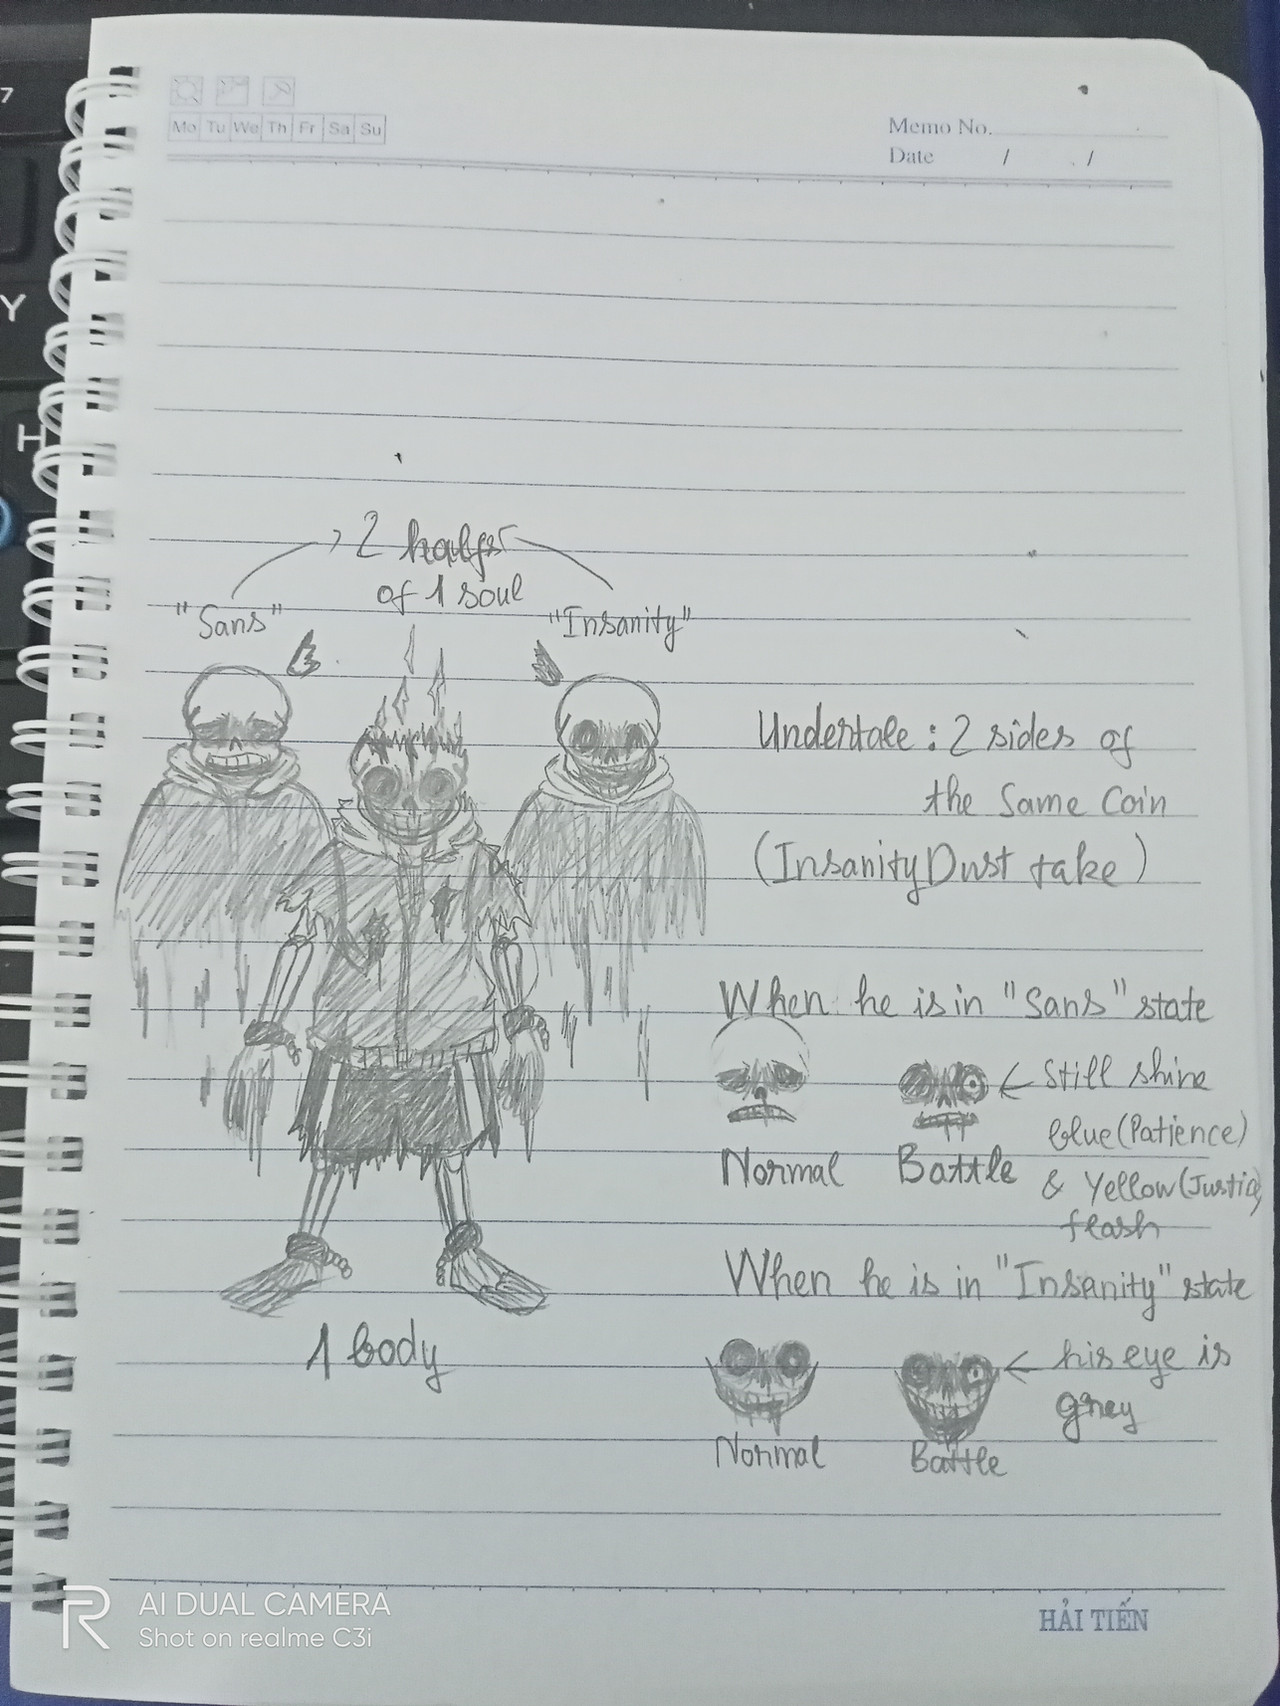 7
Y
H
Mo Tu We Th Fr Sa Su
Memo No.
Date / /
2 halfs
of 1 soul
"Sans"
"Insanity"
Undertale: 2 sides of
the Same Coin
(InsanityDust take)
When he is in "Sans" state
Still shine
blue(Patience)
& Yellow(Justice)
flash
Normal
Battle
When he is in "Insanity" state
his eye is
grey
Normal
Battle
1 body
HẢI TIẾN
R
AI DUAL CAMERA
Shot on realme C3i